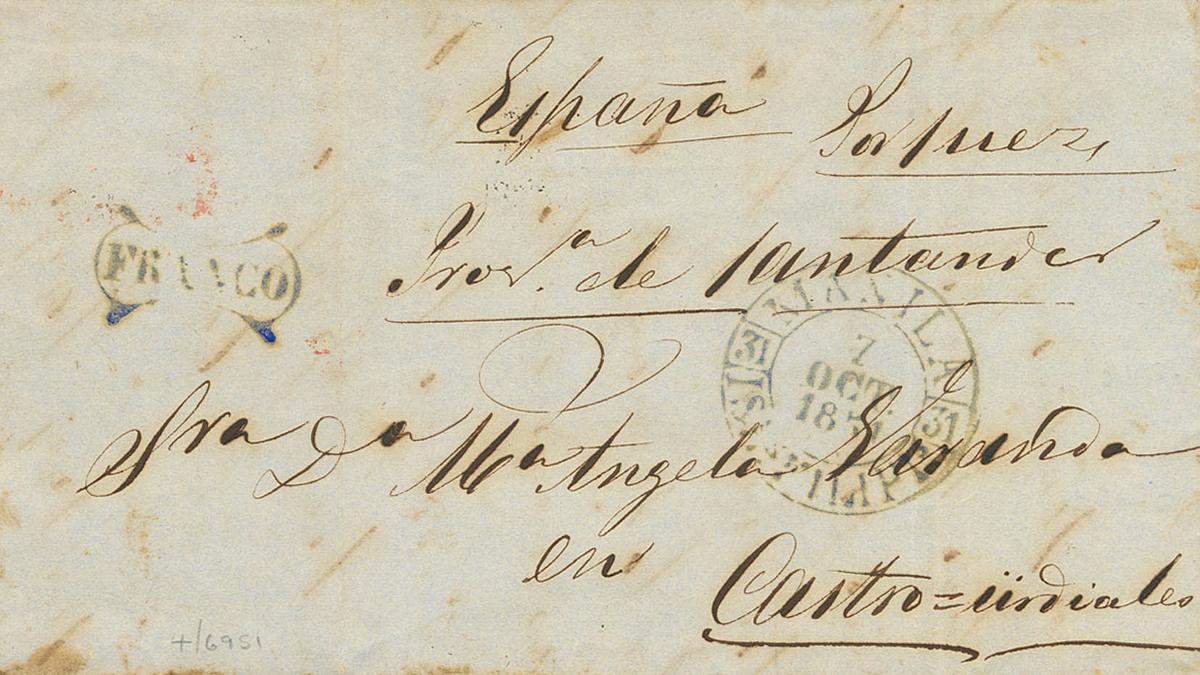 España Por Suez,
Prova. de Santander
FRANCO
MANILA
31 7 31
OCT.
18
ISLAS FILIPINAS
Sra Da Ma Angela
en
Castro=urdiales
+/6951